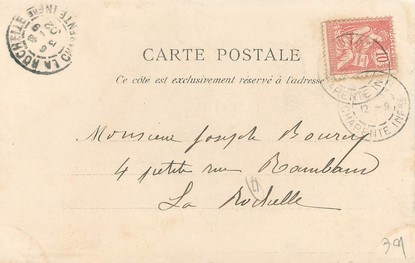 LA ROCHELLE
CARTE POSTALE
Ce côté est exclusivement réservé à l'adresse
10
CHARENTE INFRE
12 - 9
Monsieur Joseph
4 petite rue Rambaud
La Rochelle